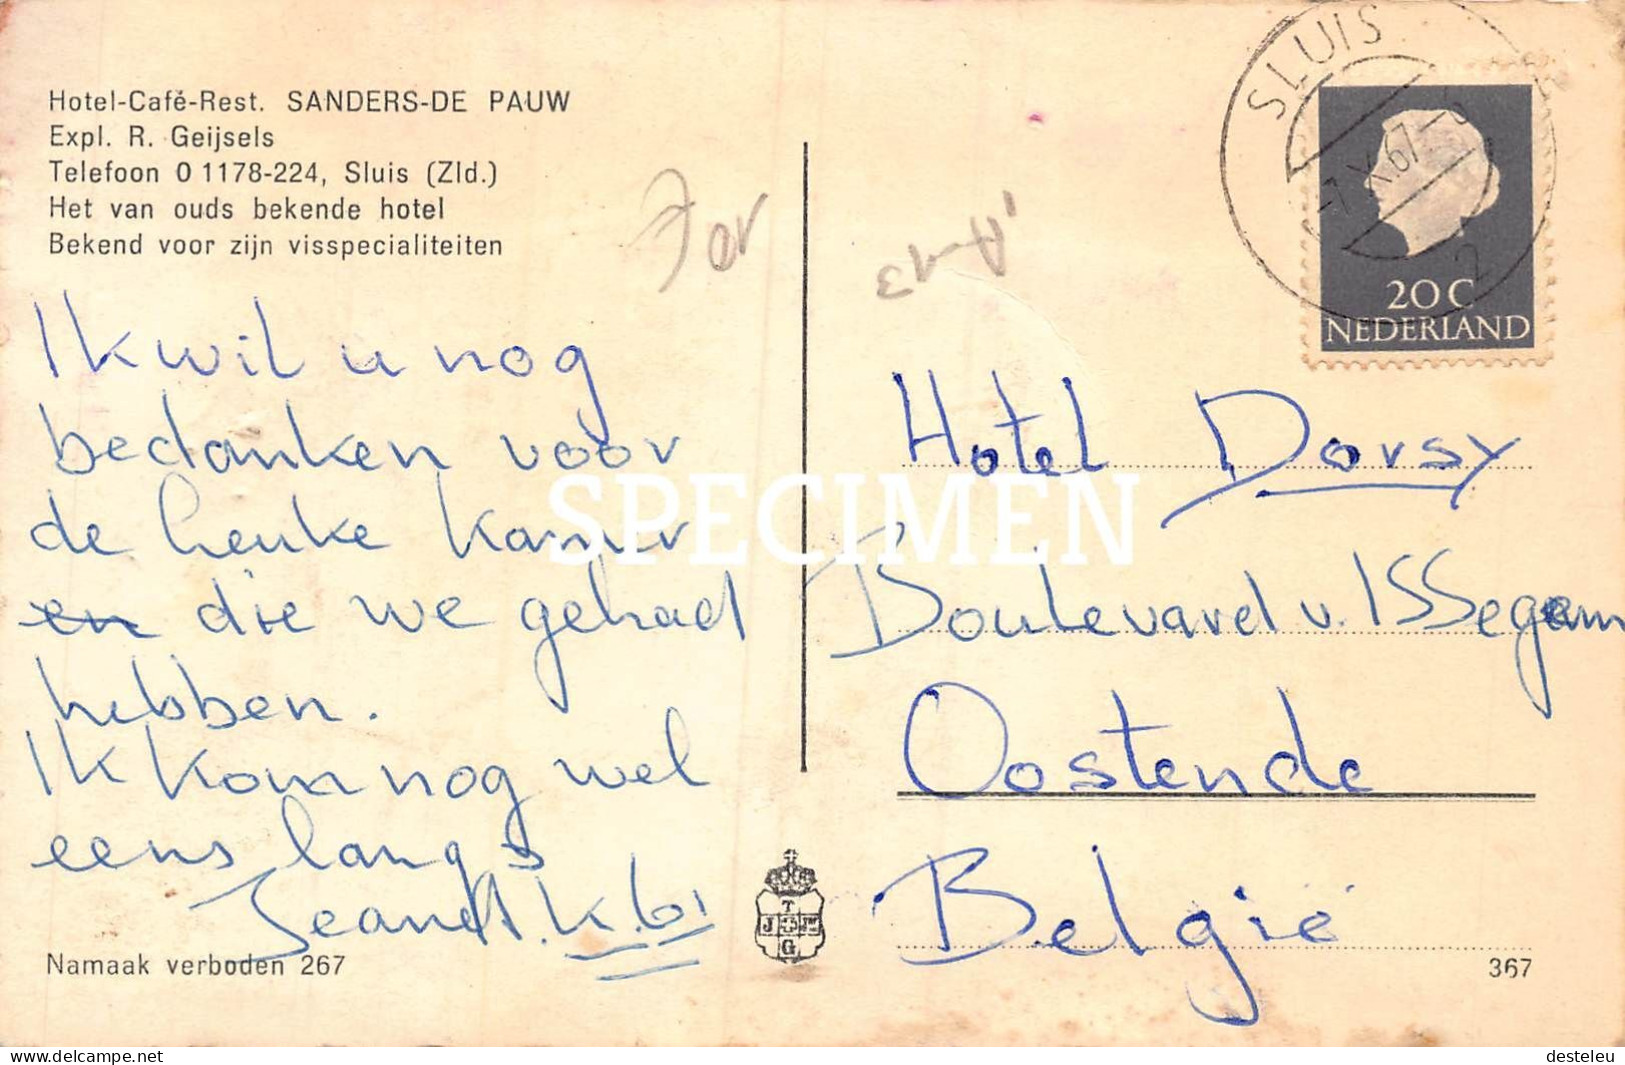 Hotel-Café-Rest. SANDERS-DE PAUW
Expl. R. Geijsels
Telefoon 0 1178-224, Sluis (Zld.)
Het van ouds bekende hotel
Bekend voor zijn visspecialiteiten
Ik wil u nog
bedanken voor
de leuke kamer
en die we gehad
hebben.
Ik kom nog wel
eens langs
Namaak verboden 267
SLUIS
-7 X 67
2
20 C
NEDERLAND
Hotel Dorsy
Boulevard v. ISSegem
Oostende
België
367
T
J
G
SPECIMEN
www.delcampe.net
desteleu